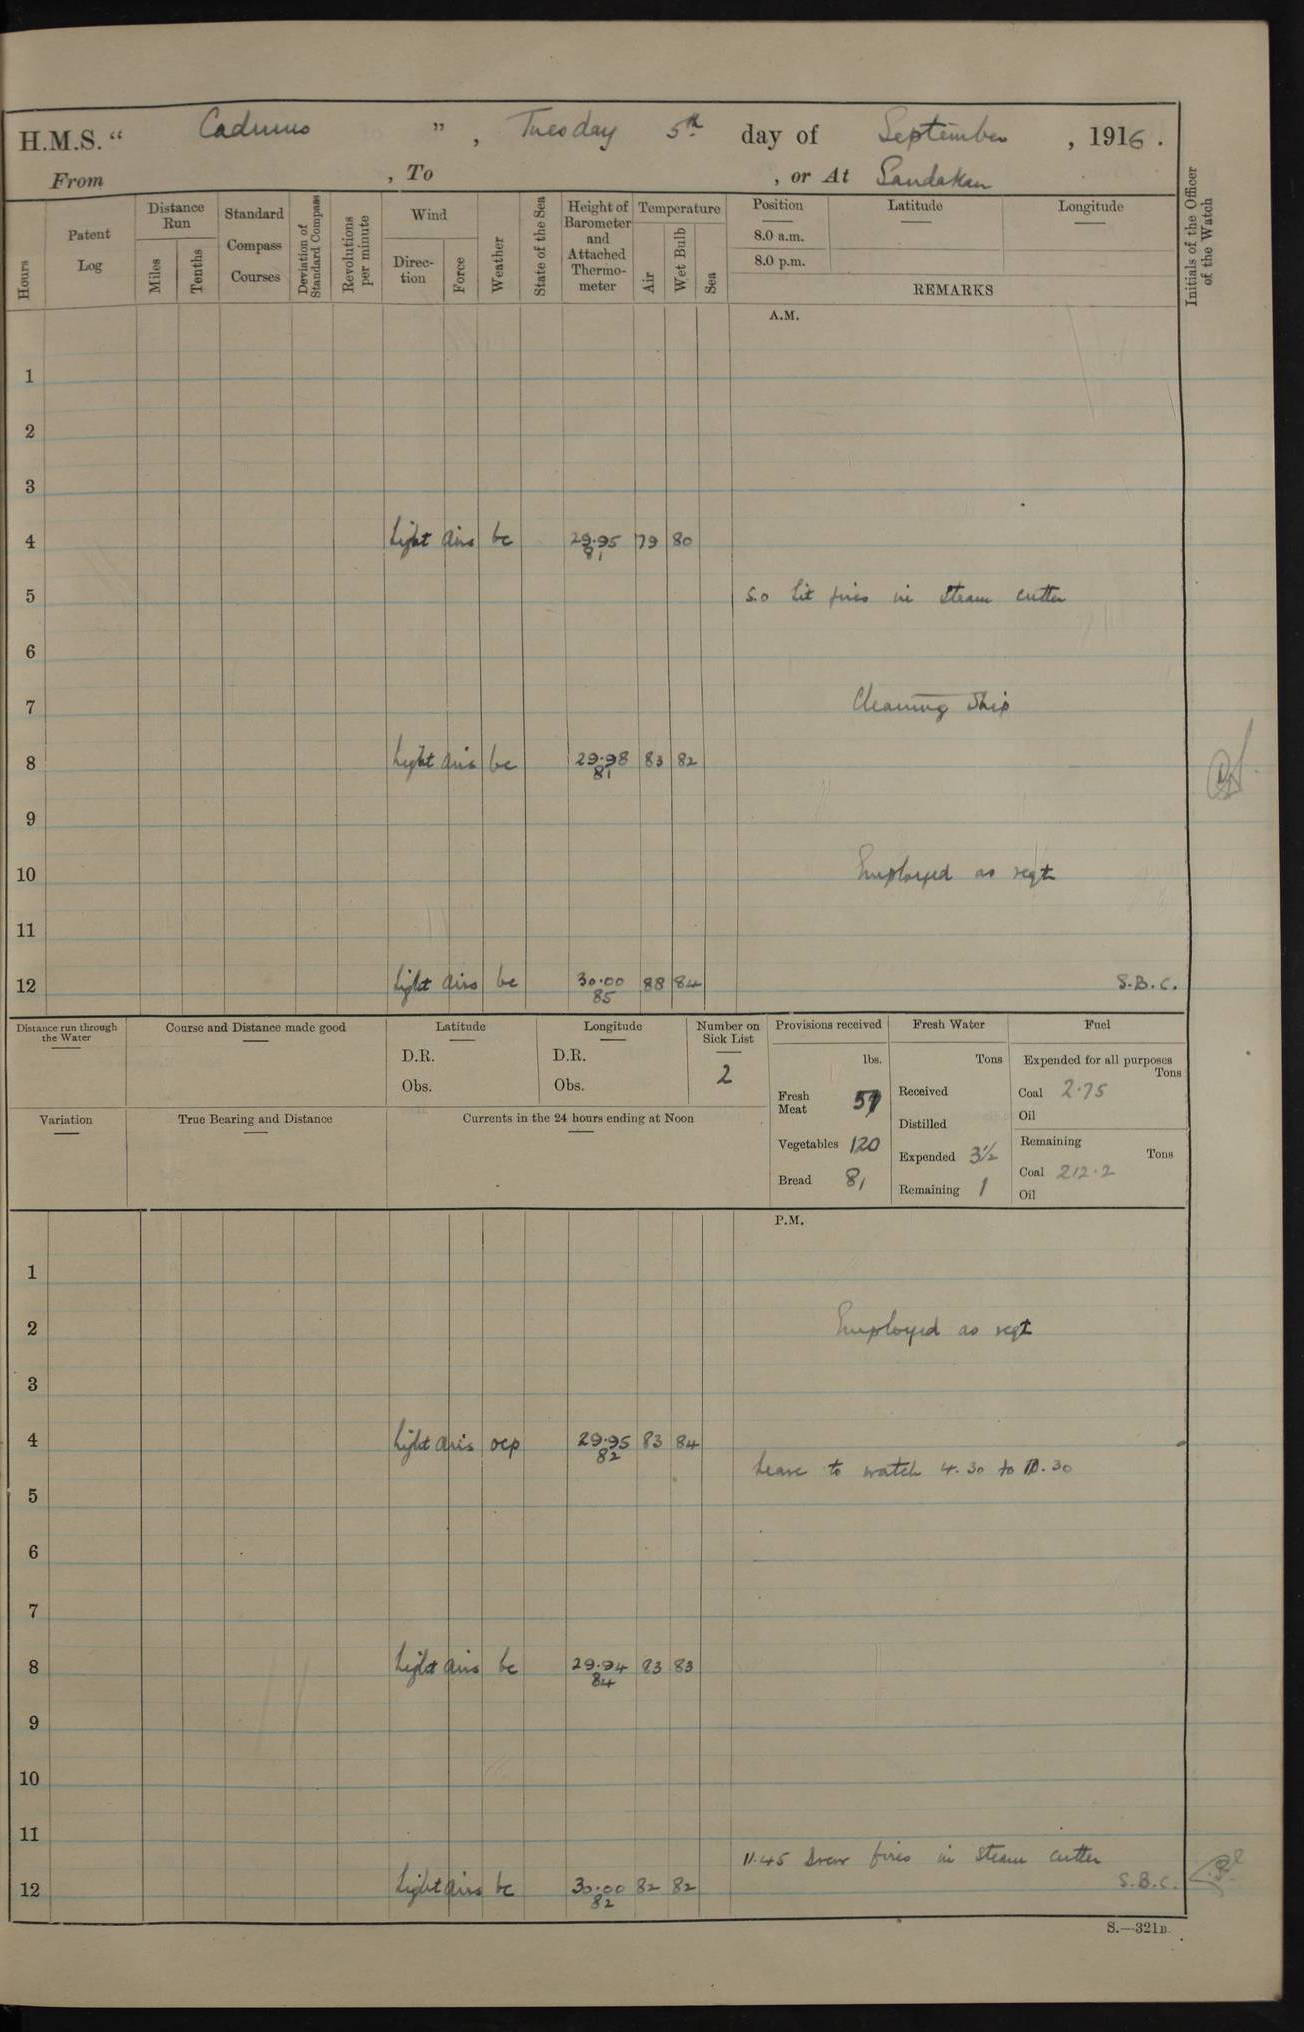 H.M.S. “ Cadmus ” , Tuesday 5th day of September , 1916 .
From , To , or At Sandakan
Hours
Patent Log
Distance Run
Miles
Tenths
Standard Compass Courses
Deviation of Standard Compass
Revolutions per minute
Wind
Direc-tion
Force
Weather
State of the Sea
Height of Barometer and Attached Thermo-meter
Temperature
Air
Wet Bulb
Sea
Position
8.0 a.m.
8.0 p.m.
Latitude
Longitude
REMARKS
Initials of the Officer of the Watch
A.M.
1
2
3
4 Light airs bc 29.95 79 80
81
5 5.0 Lit fires in steam cutter
6
7 Cleaning Ship
8 Light airs bc 29.98 83 82
81
9
10 Employed as reqt
11
12 Light airs bc 30.00 88 84 S.B.C.
85
Distance run through the Water
Course and Distance made good
Latitude
D.R.
Obs.
Longitude
D.R.
Obs.
Number on Sick List
2
Variation
True Bearing and Distance
Currents in the 24 hours ending at Noon
Provisions received
lbs.
Fresh Meat 57
Vegetables 120
Bread 81
Fresh Water
Tons
Received
Distilled
Expended 3½
Remaining 1
Fuel
Expended for all purposes
Tons
Coal 2.75
Oil
Remaining
Tons
Coal 212.2
Oil
P.M.
1
2 Employed as reqt
3
4 Light airs ocp 29.95 83 84
82
Leave to watch 4.30 to 10.30
5
6
7
8 Light airs bc 29.94 83 83
84
9
10
11
11.45 Drew fires in steam cutter
12 Light airs bc 30.00 82 82 S.B.C.
82
S.—321B.